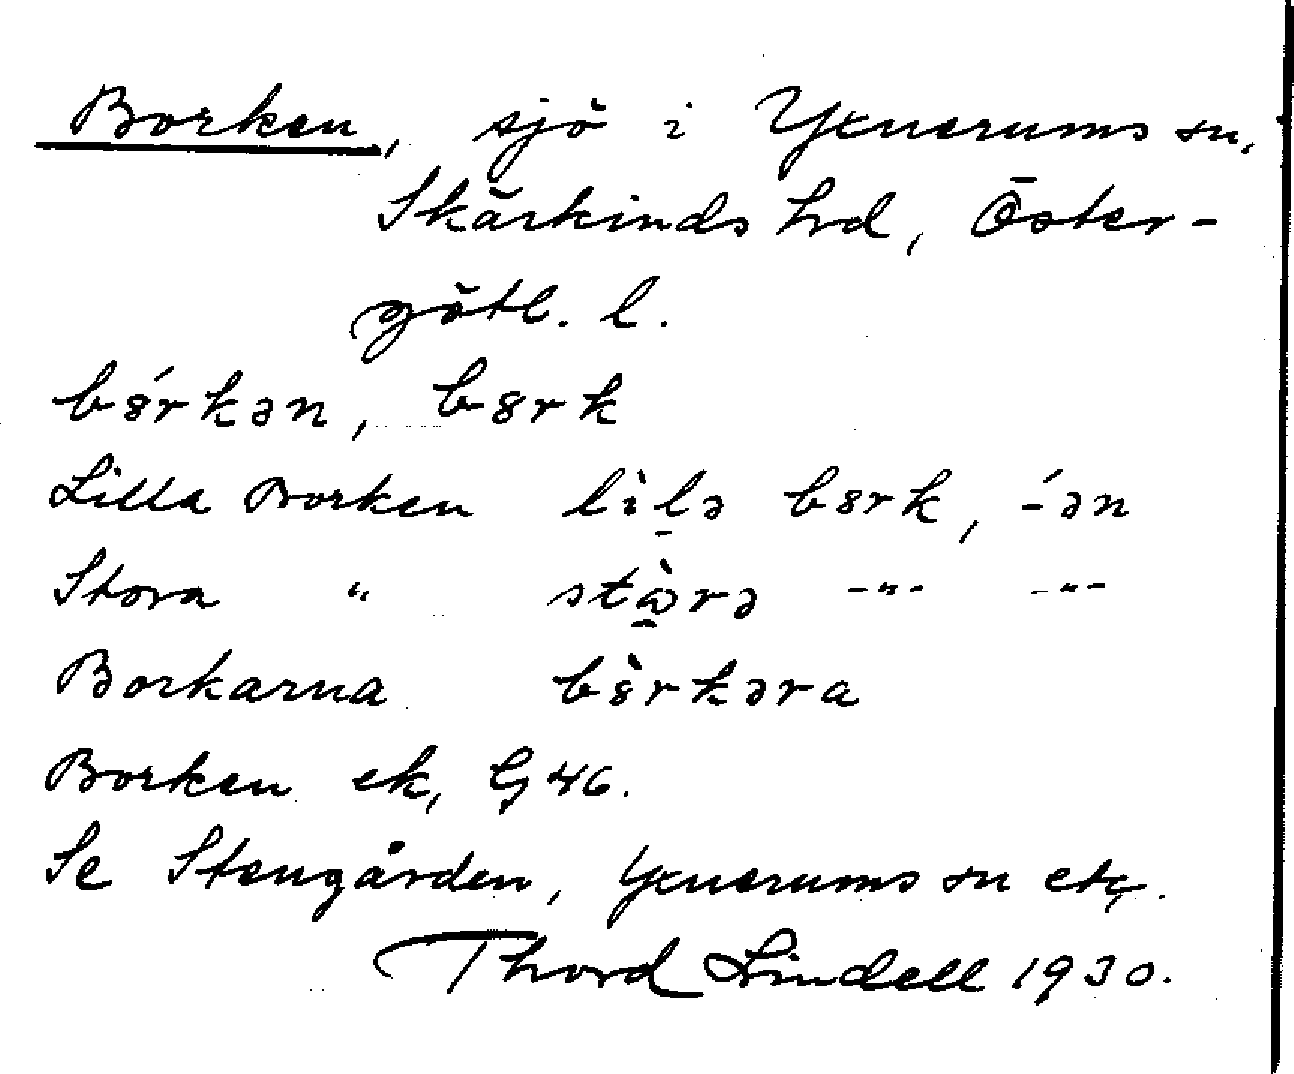 Borken, sjö i Yxnerums sn,
Skärkinds hd, Öster-
götl. l.
bȣ́rkən, bȣrk
Lilla Borken lìlə bȣrk, -́ən
Stora " stɷ̀rə -"- -"-
Borkarna bȣ̀rkəra
Borken ek, G 46.
Se Stengården, Yxnerums sn etc.
Thord Lindell 1930.